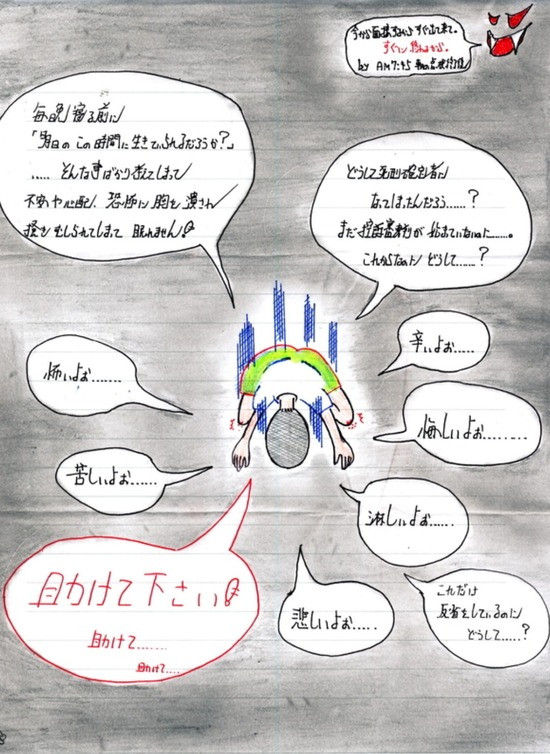 今から面接するからすぐ出て来て。
すぐに終わるから。
by AM7:45 朝の点検
毎晩、寝る前に
「明日のこの時間に生きていられるだろうか?」
.....そんな事ばかり考えてしまって
不安や心配、恐怖に胸を潰され
掻きむしられてしまって眠れません!
どうして死刑確定者に
なってしまったんだろう......?
まだ控訴審判が始まっていないのに......。
これからなのにどうして......?
辛いよぉ......
怖いよぉ.......
悔しいよぉ.........
苦しいよぉ......
淋しいよぉ......
助けて下さい!
助けて........
助けて......
悲しいよぉ.....
これだけ
反省をしているのに
どうして......?